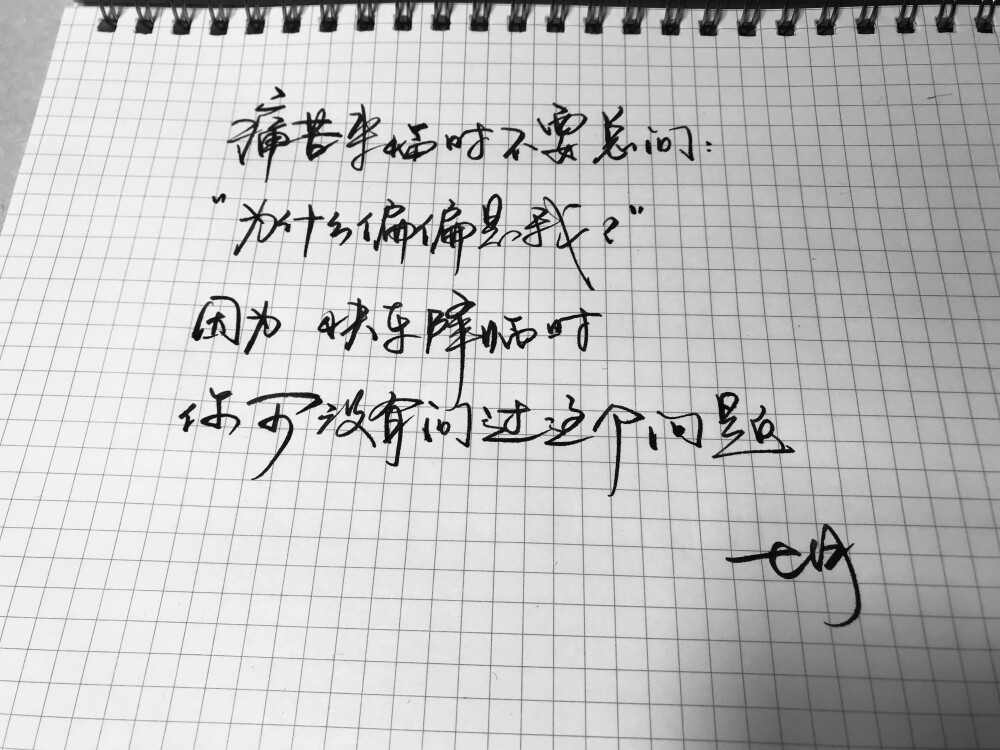 痛苦来临时不要总问：
“为什么偏偏是我？”
因为快乐降临时
你可没有问过这个问题